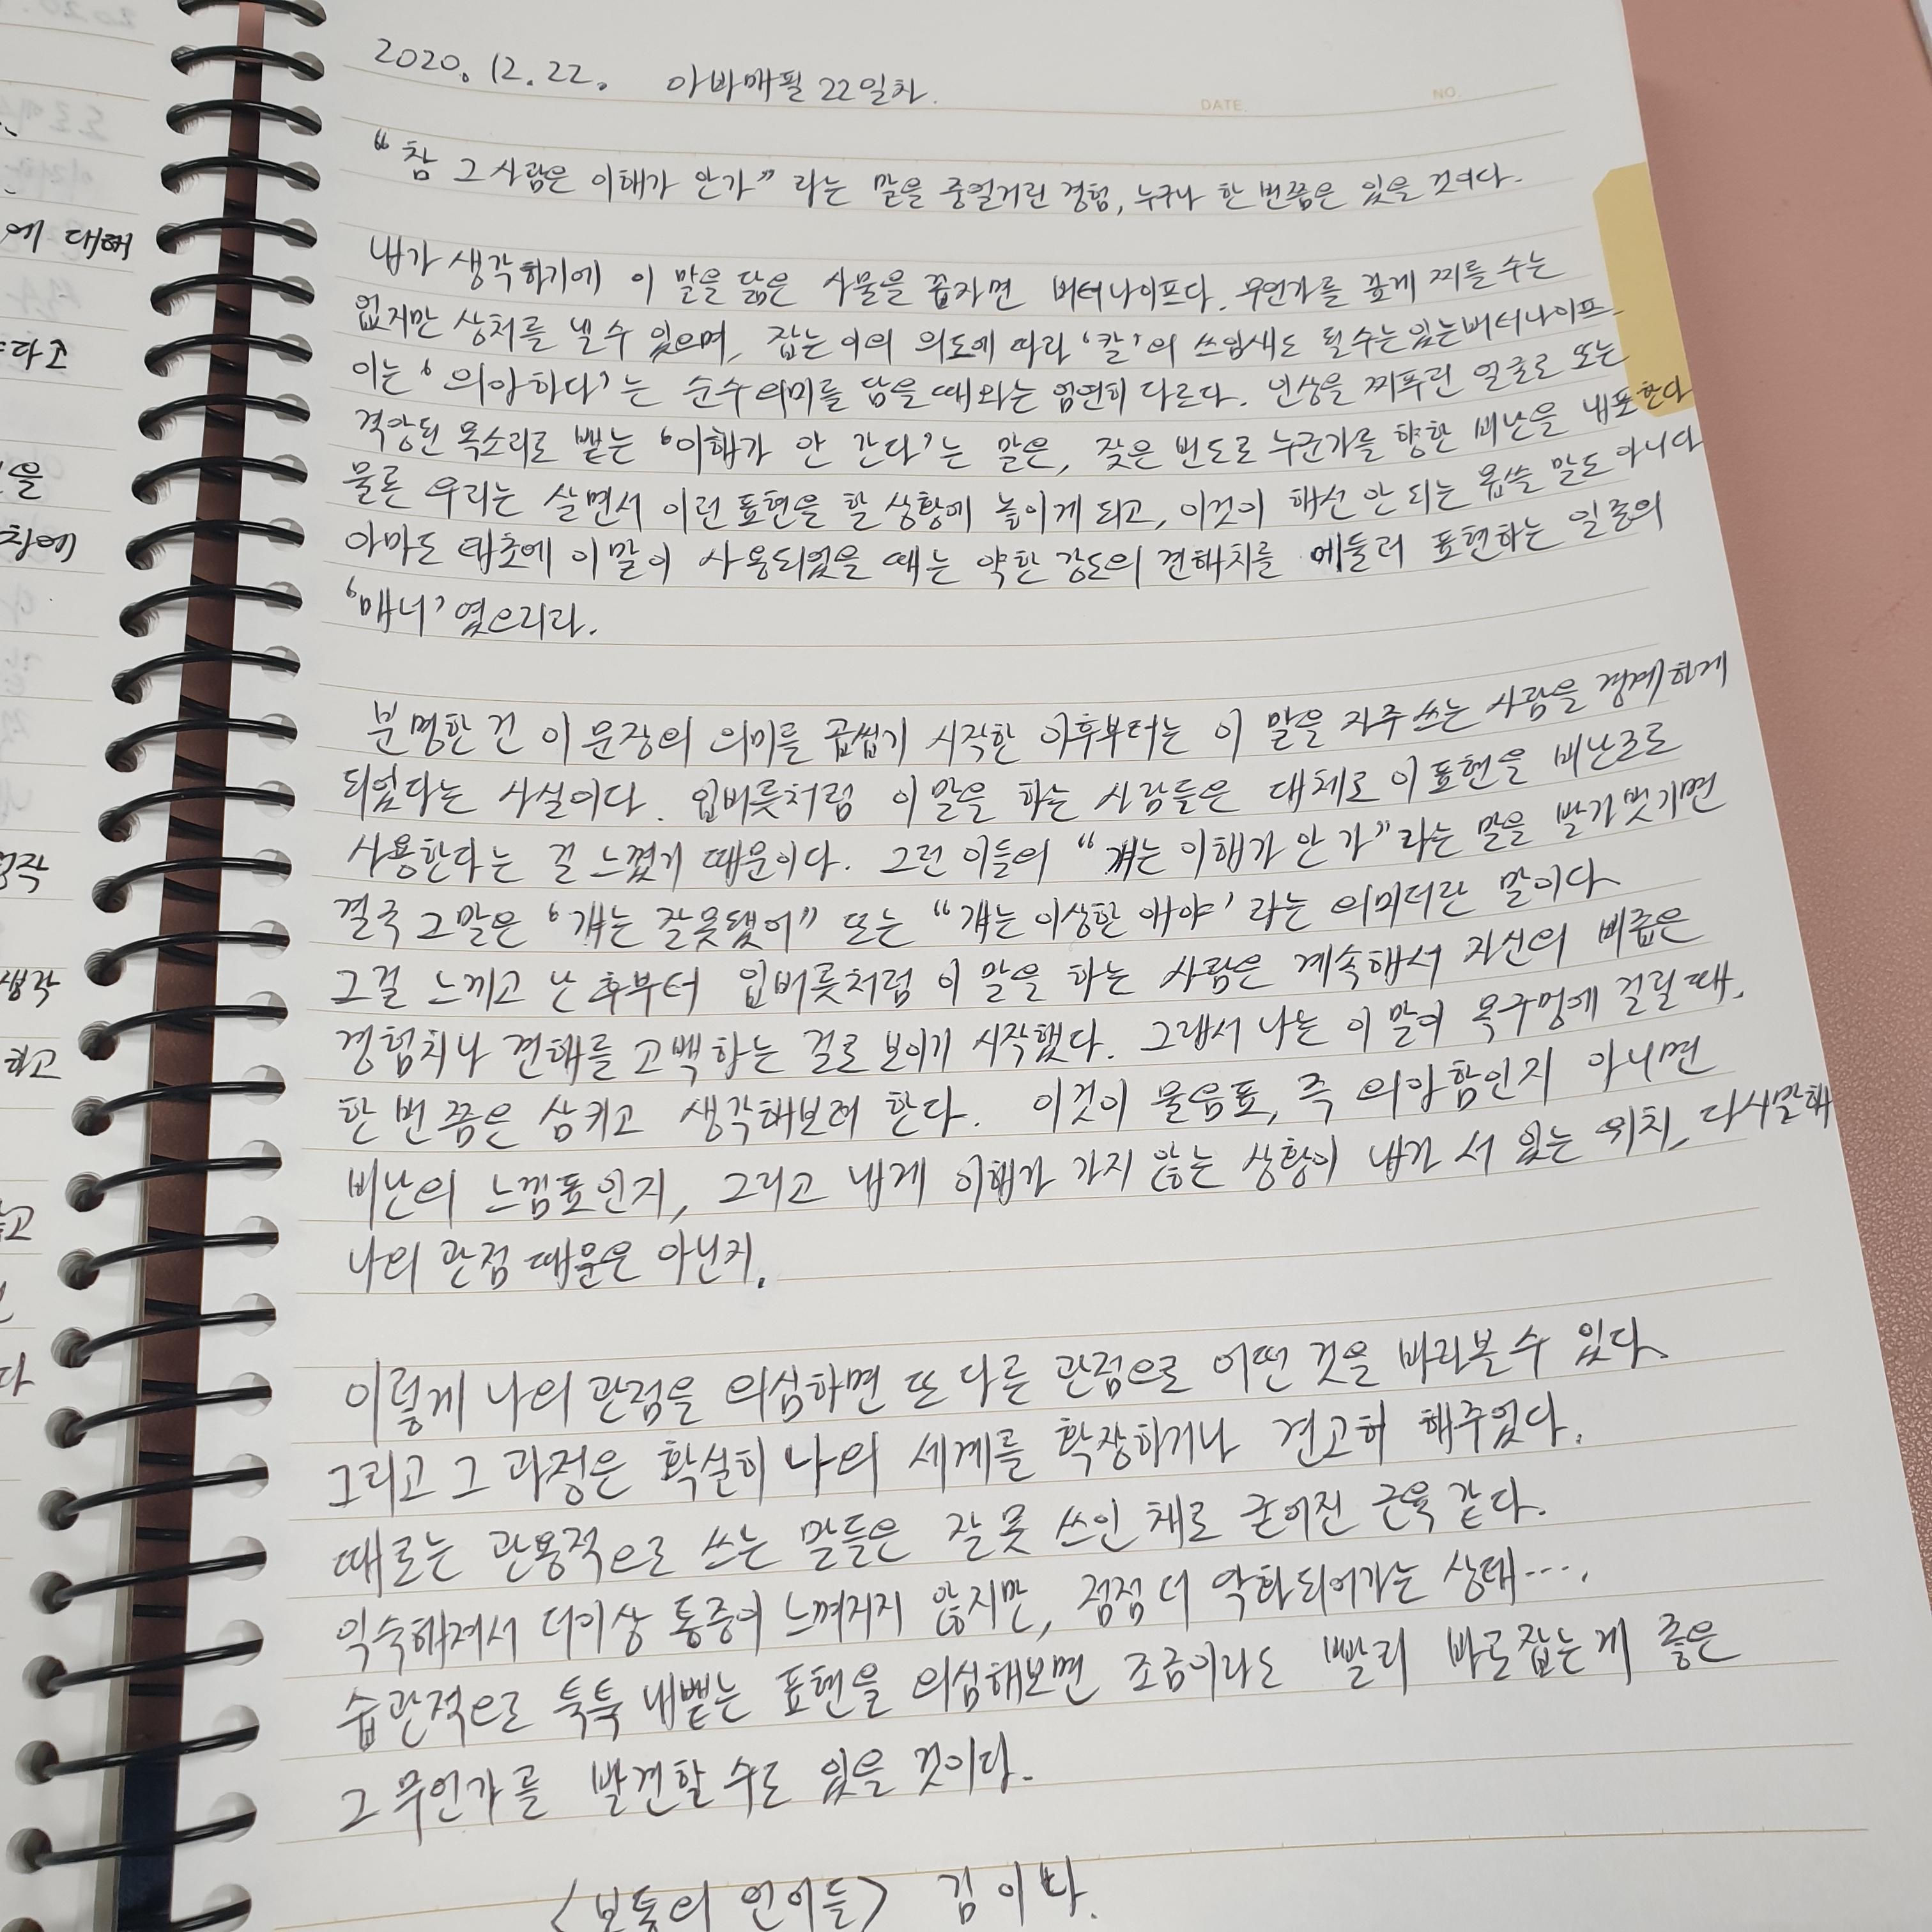 2020. 12. 22. 아바매필 22일차.
DATE. NO.
"참 그 사람은 이해가 안가" 라는 말을 중얼거린 경험, 누구나 한 번쯤은 있을 것이다.
내가 생각하기에 이 말을 닮은 사물을 꼽자면 버터나이프다. 무언가를 깊게 찌를 수는
없지만 상처를 낼 수 있으며, 잡는 이의 의도에 따라 '칼'의 쓰임새도 될 수는 있는 버터나이프.
이는 '의아하다'는 순수 의미를 담을 때와는 엄연히 다르다. 인상을 찌푸린 얼굴로 또는
격앙된 목소리로 뱉는 '이해가 안 간다'는 말은, 잦은 빈도로 누군가를 향한 비난을 내포한다
물론 우리는 살면서 이런 표현을 할 상황에 놓이게 되고, 이것이 해선 안 되는 몹쓸 말도 아니다
아마도 태초에 이 말이 사용되었을 때는 약한 강도의 견해차를 에둘러 표현하는 일종의
'매너' 였으리라.
분명한 건 이 문장의 의미를 곱씹기 시작한 이후부터는 이 말을 자주 쓰는 사람을 경계하게
되었다는 사실이다. 입버릇처럼 이 말을 하는 사람들은 대체로 이 표현을 비난조로
사용한다는 걸 느꼈기 때문이다. 그런 이들의 "걔는 이해가 안 가" 라는 말을 발가벗기면
결국 그 말은 '걔는 잘못됐어" 또는 "걔는 이상한 애야' 라는 의미더란 말이다
그걸 느끼고 난 후부터 입버릇처럼 이 말을 하는 사람은 계속해서 자신의 비좁은
경험치나 견해를 고백하는 걸로 보이기 시작했다. 그래서 나는 이 말이 목구멍에 걸릴 때,
한 번쯤은 삼키고 생각해보려 한다. 이것이 물음표, 즉 의아함인지 아니면
비난의 느낌표인지, 그리고 내게 이해가 가지 않는 상황이 내가 서 있는 위치, 다시말해
나의 관점 때문은 아닌지.
이렇게 나의 관점을 의심하면 또 다른 관점으로 어떤 것을 바라볼 수 있다.
그리고 그 과정은 확실히 나의 세계를 확장하거나 견고히 해주었다.
때로는 관용적으로 쓰는 말들은 잘 못 쓰인 채로 굳어진 근육 같다.
익숙해져서 더이상 통증이 느껴지지 않지만, 점점 더 악화되어가는 상태....
습관적으로 툭툭 내뱉는 표현을 의심해보면 조금이라도 빨리 바로잡는게 좋은
그 무언가를 발견할 수도 있을 것이다.
<보통의 언어들> 김이나.
에 대해
다고
을
작
생각
하고
고
다